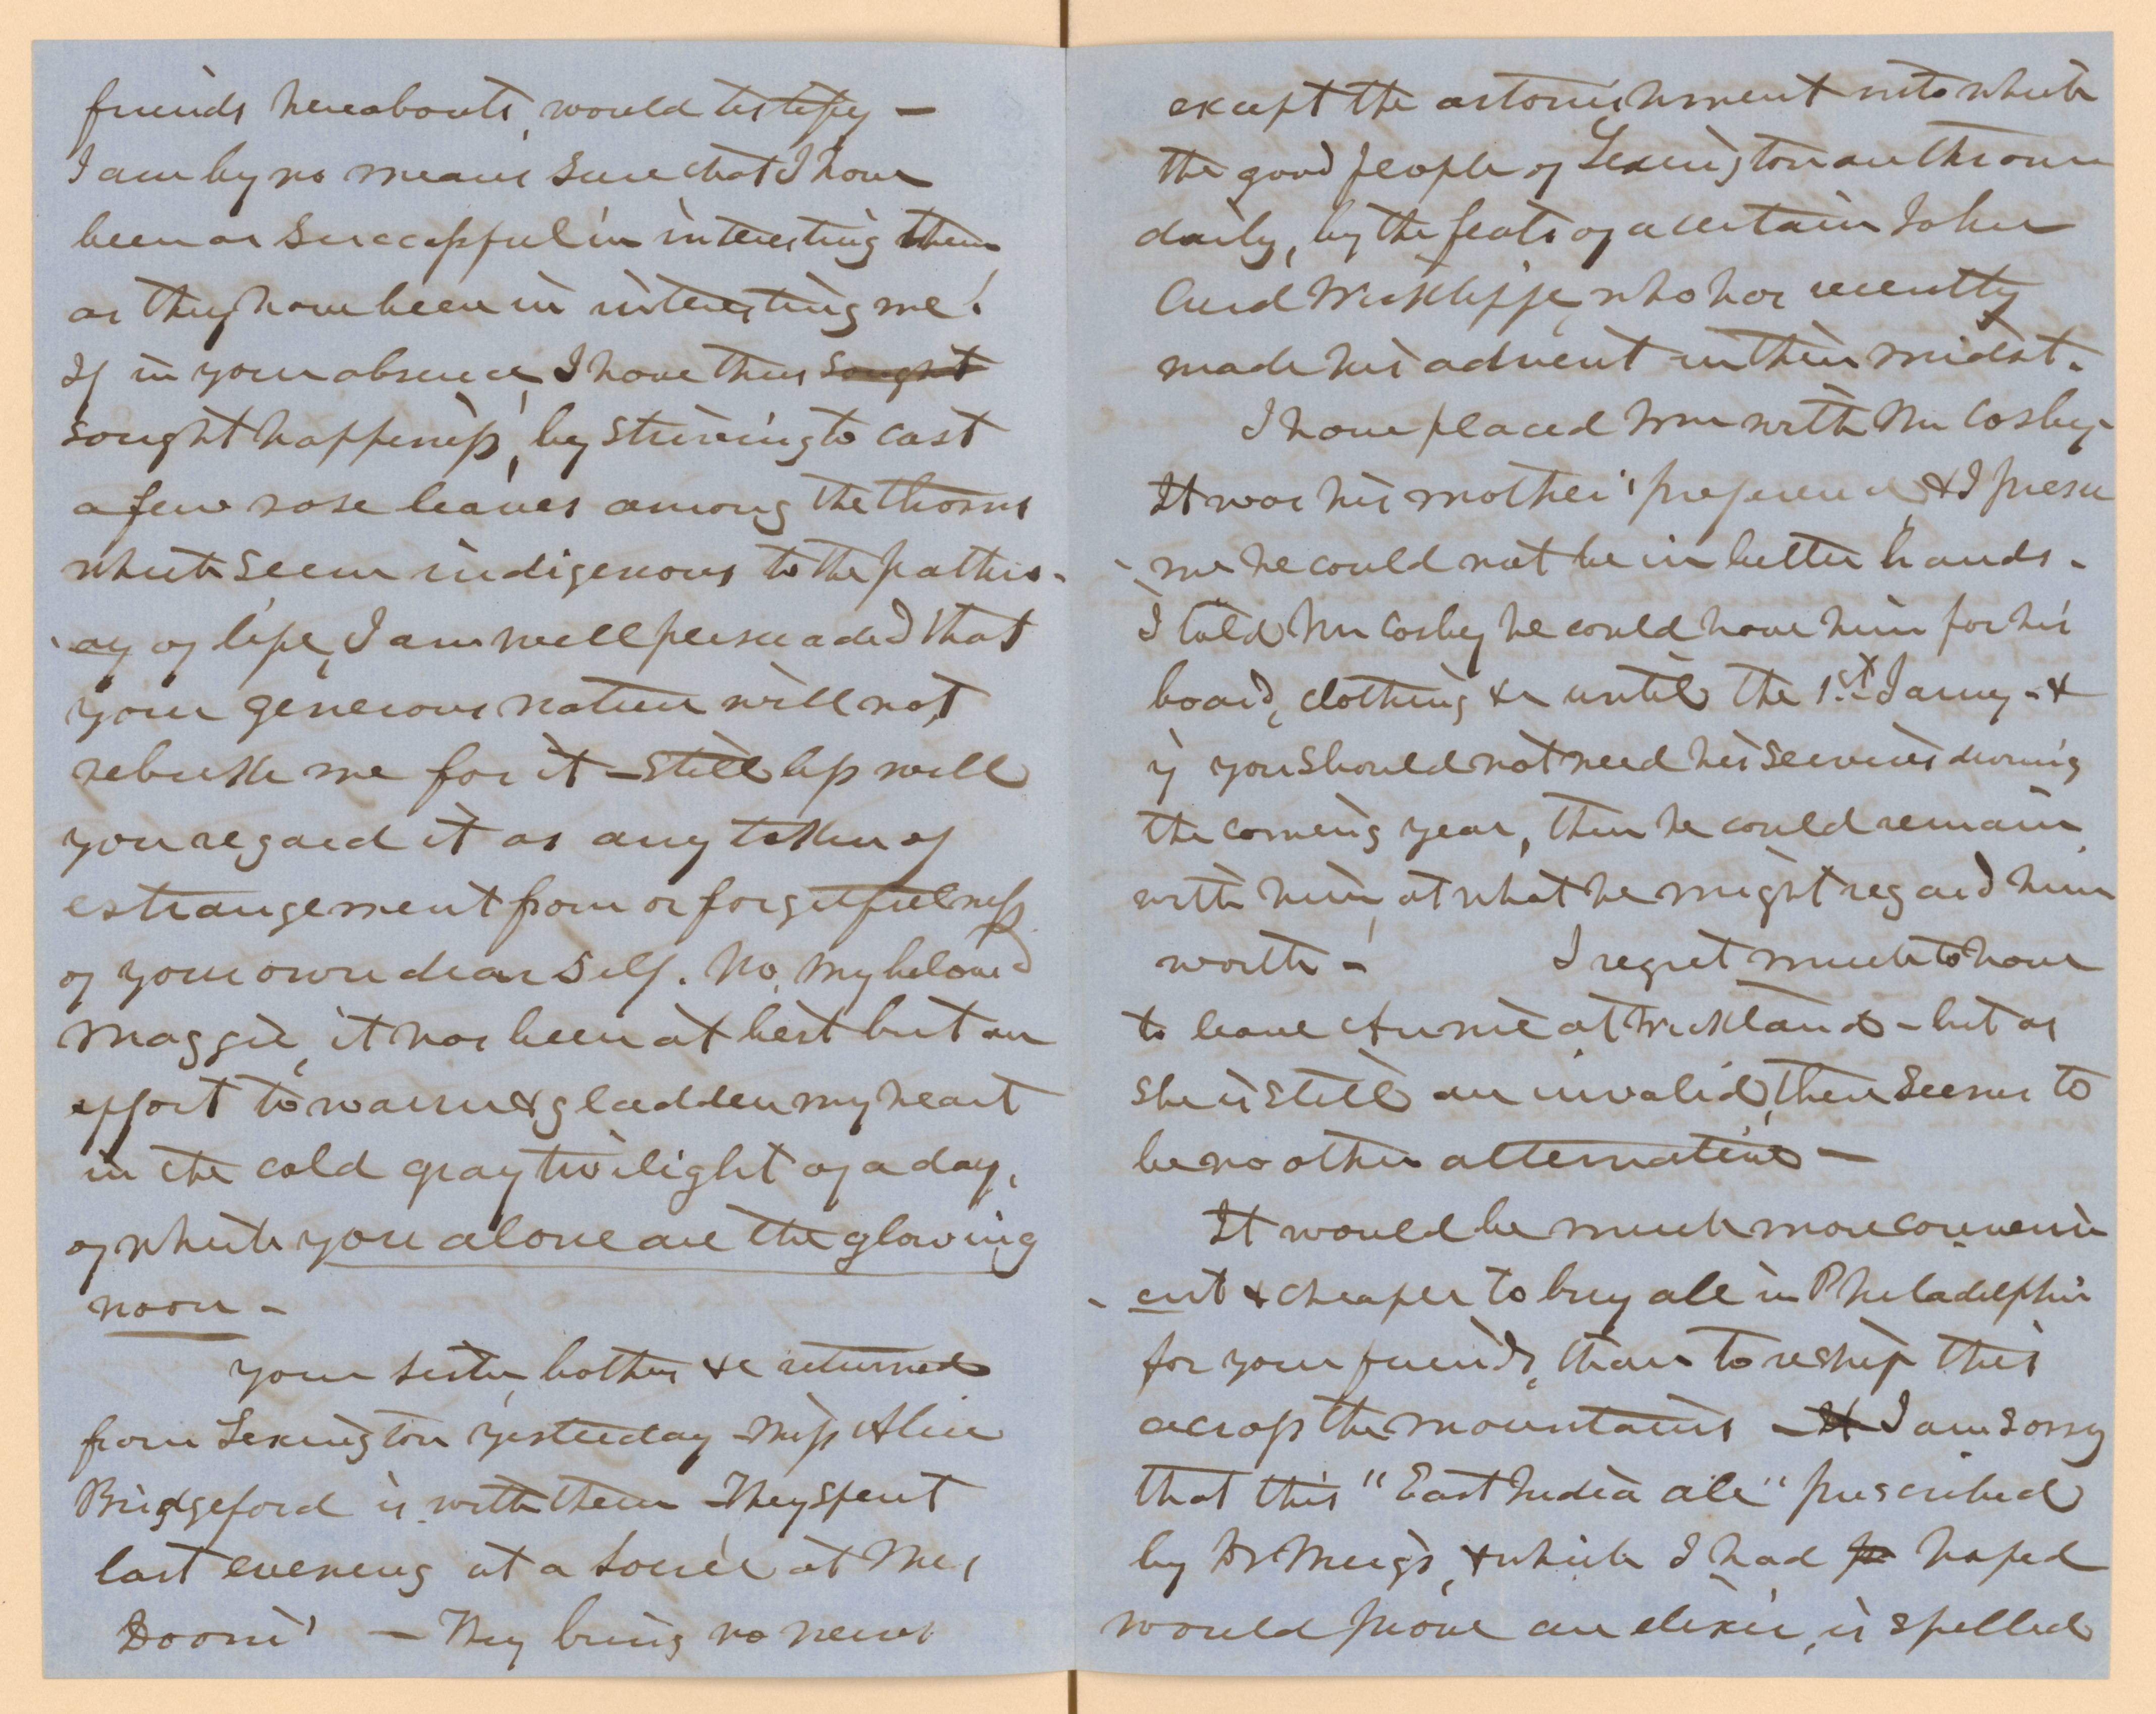 friends hereabouts, would testify –
I am by no means sure that I have
been as successful in interesting them
as they have been in interesting me!
If in your absence, I have thus sought
sought happiness, by striving to cast
a few rose leaves among the thorns
which seem indigenous to the pathw-
-ay of life, I am well persuaded that
your generous nature will not
rebuke me for it – still less will
you regard it as any token of
estrangement from or forgetfulness
of your own dear self. No, my beloved
Maggie, it has been at best but an
effort to warm & gladden my heart
in the cold gray twilight of a day,
of which you alone are the glowing
noon –
Your sister, brother &c returned
from Lexington yesterday – Miss Alice
Bridgeford is with them – They spent
last evening at a soireé at Mrs
Doom's – They bring no news
except the astonishment into which
the good people of Lexington are thrown
daily, by the feats of a certain John
Curd Wickliffe, who has recently
made his advent in their midst.
I have placed Wm with Mr Cosby –
It was his mother's preference, & I presu
-me he could not be in better hands –
I told Mr Cosby he could have him for his
board, clothing &c until the 1st Jany – &
if you should not need his services during
the coming year, then he could remain
with him, at what he might regard him
worth – I regret much to have
to leave Annie at Wickland – but as
she is still an invalid, there seems to
be no other alternative –
It would be much more conveni
-ent & cheaper to buy ale in Philadelphia
for your friends, than to reship this
across the mountains – It I am sorry
that this "East India ale" prescribed
by Dr Meigs, & which I had hoped
would prove an elixir, is spelled